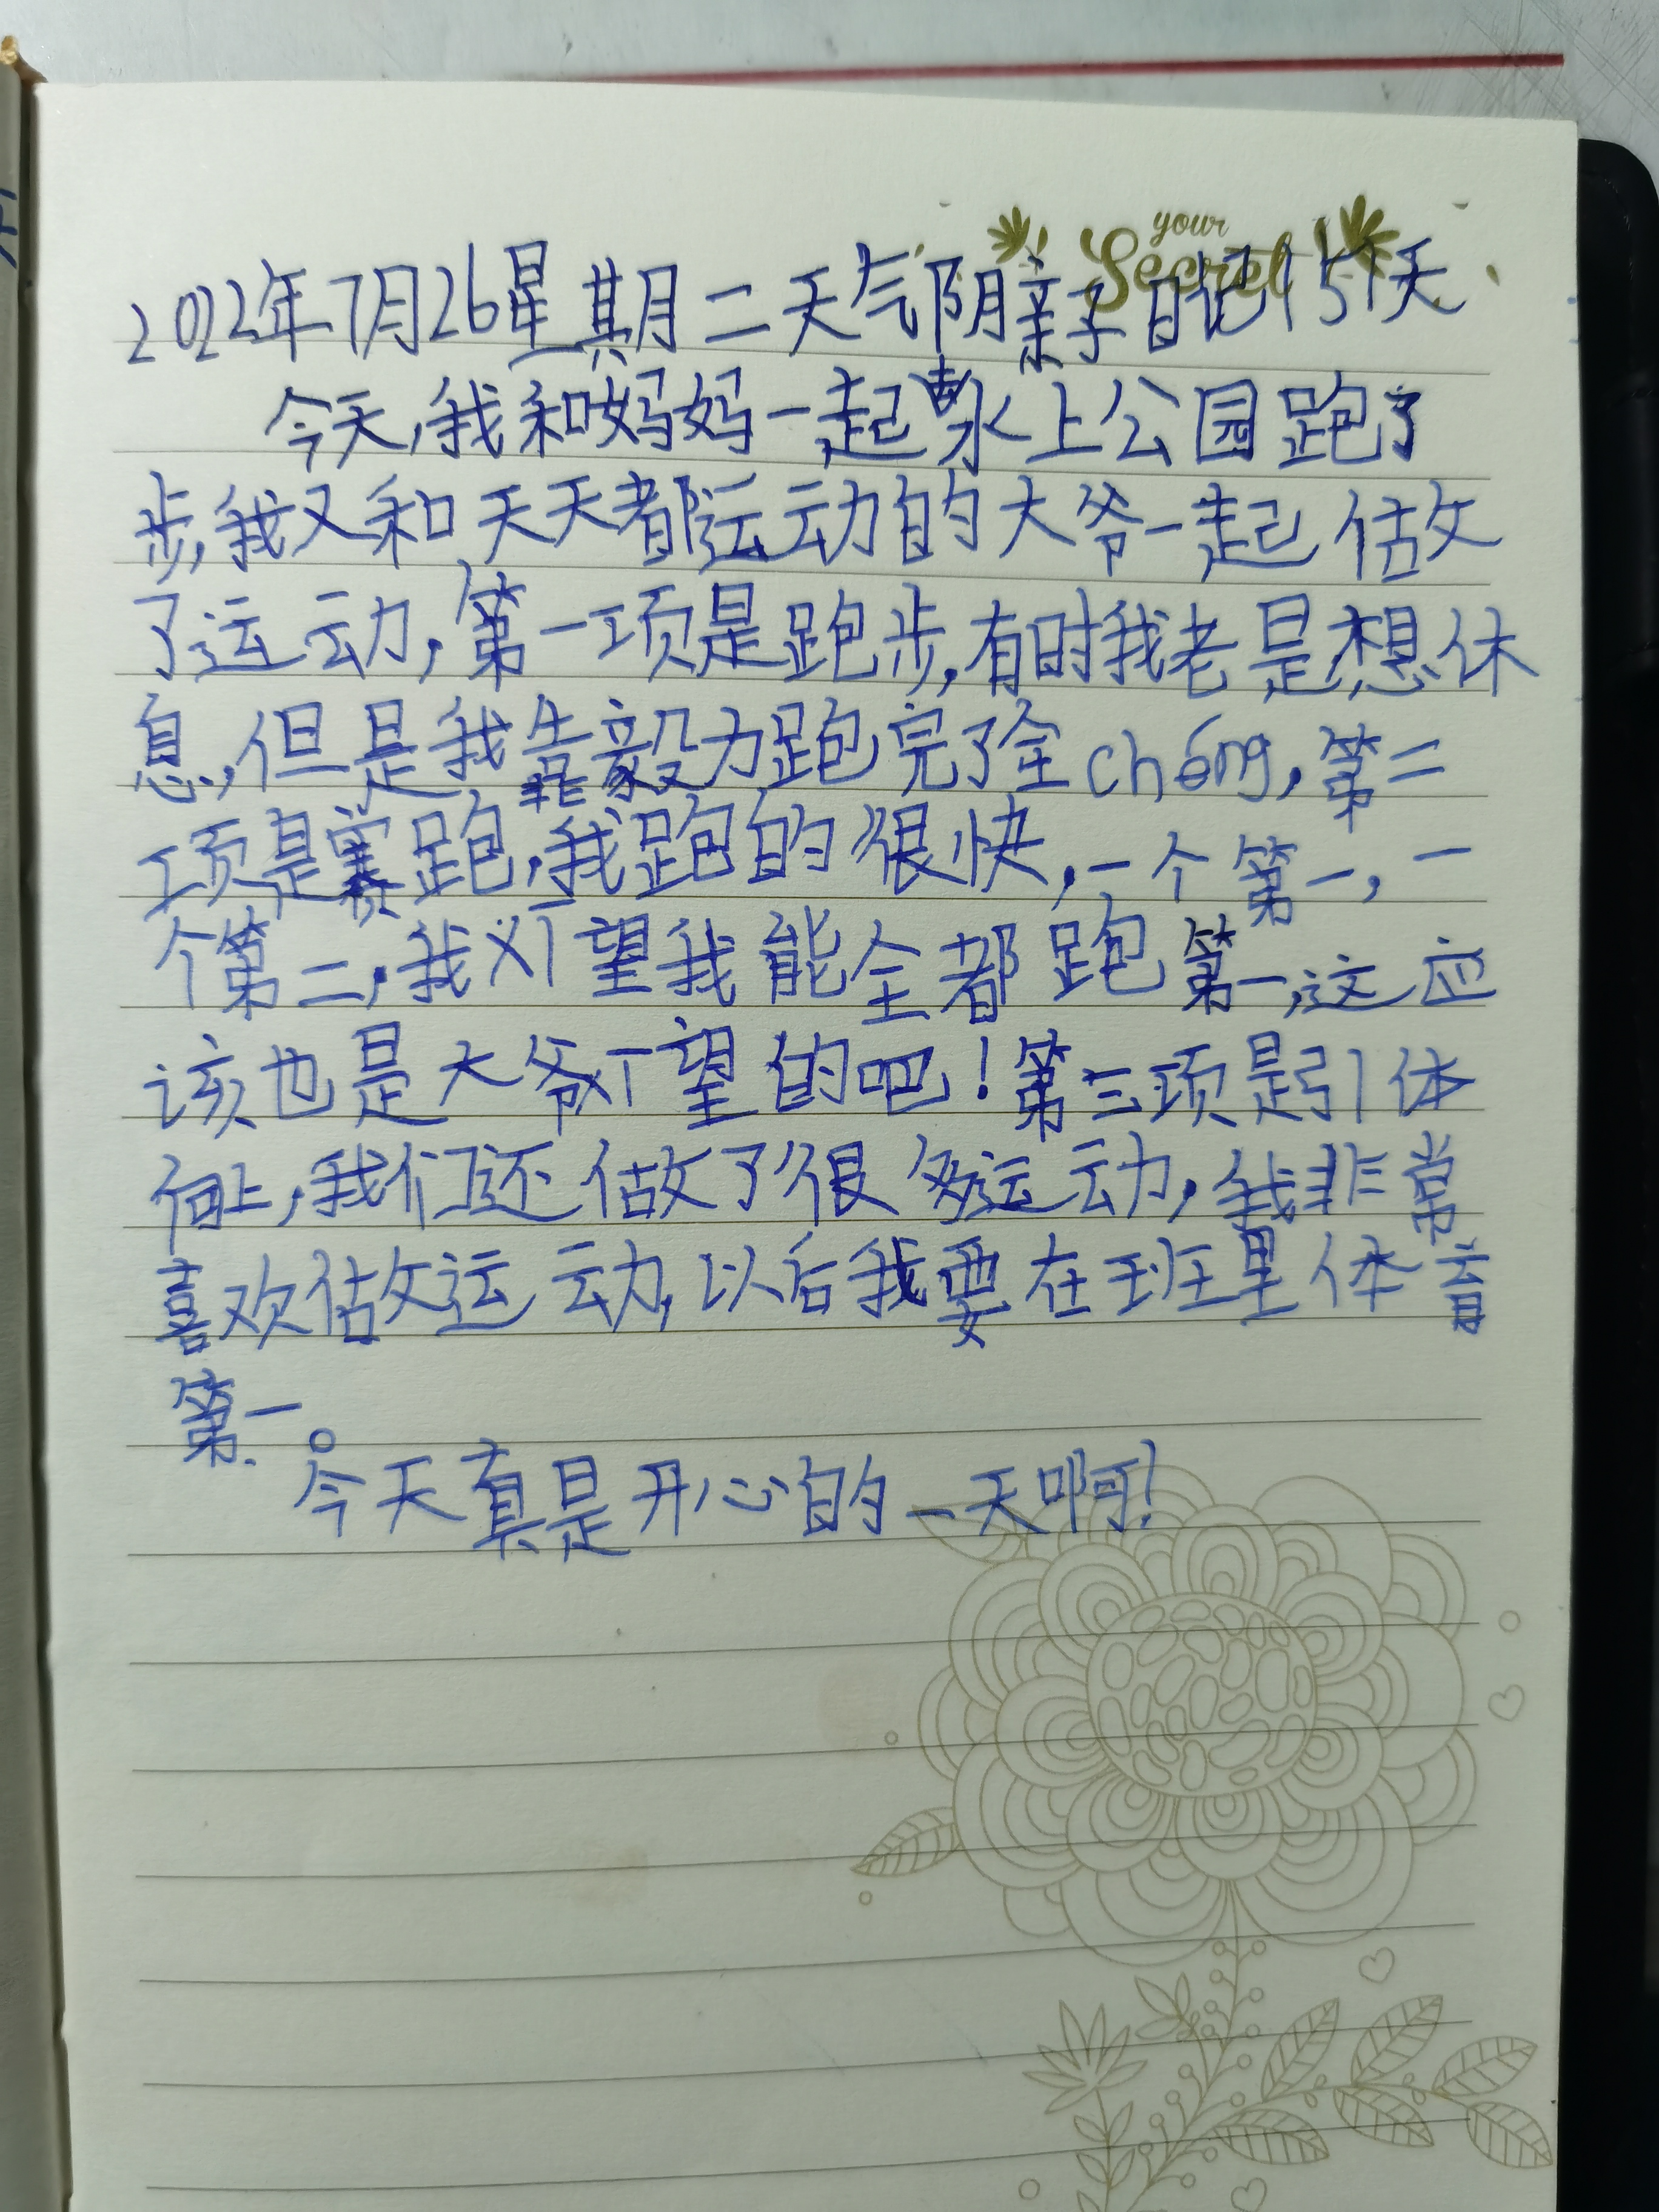 your
Secret
2022年7月26星期二天气阴亲子日记151天
今天,我和妈妈一起去水上公园跑了
步,我又和天天都运动的大爷一起做
了运动,第一项是跑步,有时我老是想休
息,但是我靠毅力跑完了全chéng,第二
项是赛跑,我跑的很快,一个第一,一
个第二,我对望我能全都跑第一,这应
该也是大爷希望的吧!第三项是引体
向上,我们还做了很多运动,我非常
喜欢做运动,以后我要在班里体育
第一。
今天真是开心的一天啊!